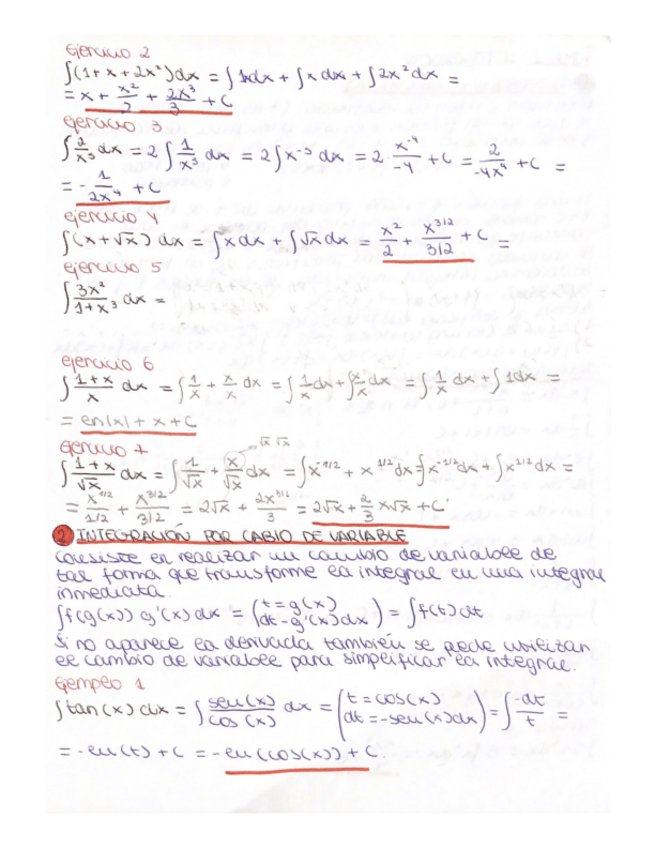 ejercicio 2
∫(1+x+2x²)dx = ∫1dx + ∫x dx + ∫2x² dx =
= x + x²/2 + 2x³/3 + C
ejercicio 3
∫ 2/x⁵ dx = 2 ∫ 1/x⁵ dx = 2 ∫x⁻⁵ dx = 2· x⁻⁴/-4 + C = 2/-4x⁴ + C =
= - 1/2x⁴ + C
ejercicio 4
∫(x+√x) dx = ∫x dx + ∫√x dx = x²/2 + x^3/2 / 3/2 + C =
ejercicio 5
∫ 3x²/1+x³ dx =
ejercicio 6
∫ 1+x/x dx = ∫ 1/x + x/x dx = ∫ 1/x dx + ∫ x/x dx = ∫ 1/x dx + ∫ 1dx =
= ln|x| + x + C
ejercicio 7
√x √x
∫ 1+x/√x dx = ∫ 1/√x + x/√x dx = ∫x^-1/2 + x^1/2 dx = ∫x^-1/2 dx + ∫x^1/2 dx =
= x^1/2 / 1/2 + x^3/2 / 3/2 = 2√x + 2x^3/2 / 3 = 2√x + 2/3 x√x + C
2 INTEGRACIÓN POR CABIO DE VARIABLE
Consiste en realizar un cambio de variable de
tal forma que transforme la integral en una integral
inmediata.
∫f(g(x)) g'(x) dx = (t = g(x) dt = g'(x)dx) = ∫f(t) dt
Si no aparece la derivada también se pede utilizar
el cambio de variable para simplificar la integral.
Ejemplo 1
∫tan(x) dx = ∫ sen(x)/cos(x) dx = (t = cos(x) dt = -sen(x)dx) = ∫ -dt/t =
= - ln(t) + C = - ln(cos(x)) + C.